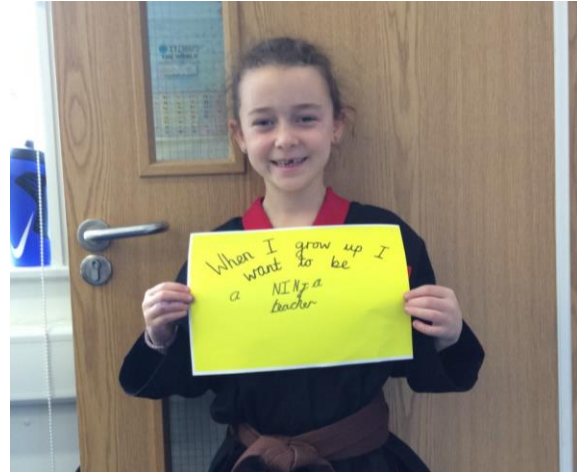 When I grow up I
want to be
a NINja
teacher